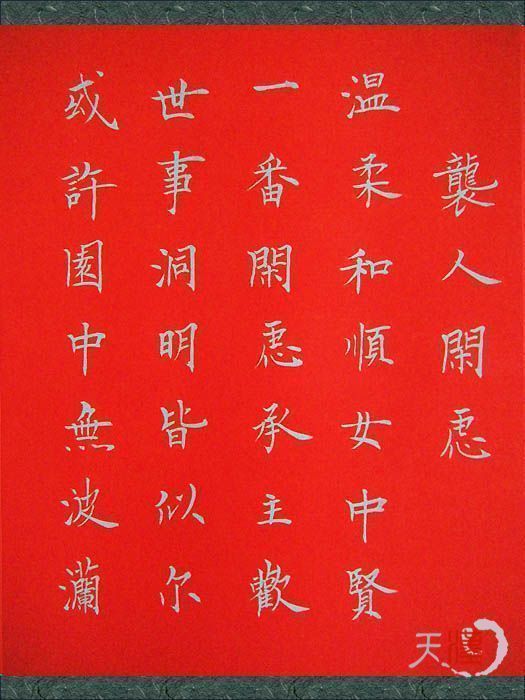 襲人閑虑
温柔和順女中賢
一番閑虑承主歡
世事洞明皆似尔
或許園中無波瀾
天